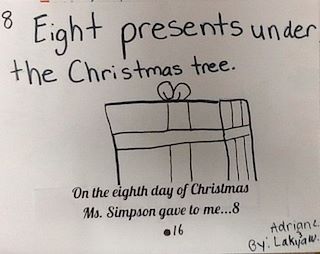 8 Eight presents under
the Christmas tree.
On the eighth day of Christmas
Ms. Simpson gave to me...8
●16
Adrian C.
By: Lakyia W.